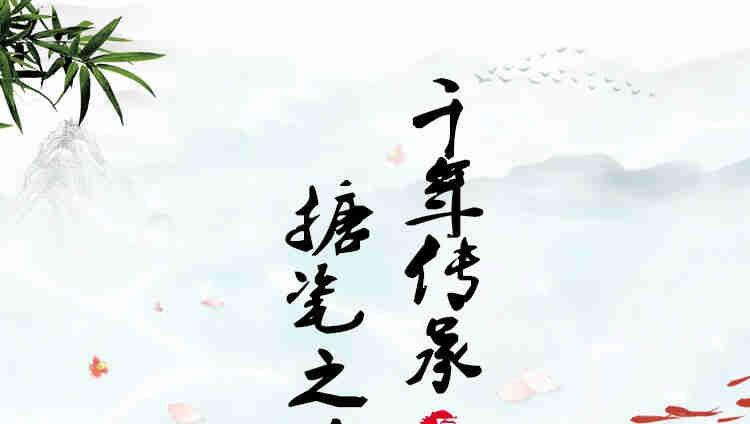 千年传承
搪瓷之